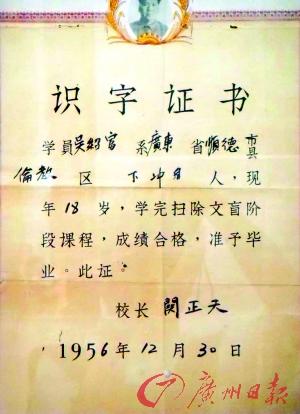 识字证书
学員吳紹官系廣東省順德市县
倫教区下冲乡人,现
年18岁,学完扫除文盲阶
段课程,成绩合格,准予毕
业。此证。
校长 関正天
1956年12月30日
廣州日报